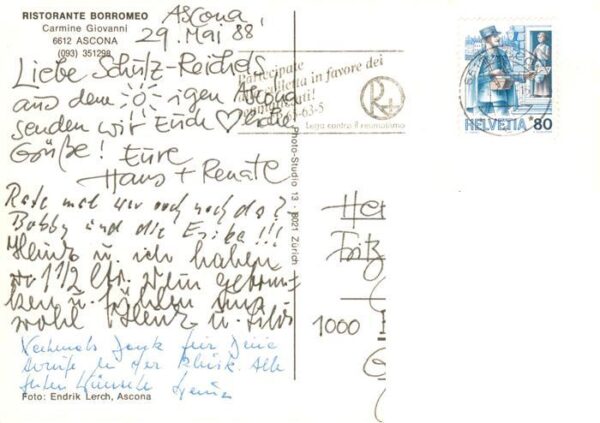 RISTORANTE BORROMEO
Carmine Giovanni
6612 ASCONA
(093) 351298
Ascona
29. Mai 88'
Liebe Schütz-Reichels
aus dem igen Ascona
senden wir Euch ♡
Grüße! Eure
Hans + Renate
Rate mal wer auch noch da?
Bobby und die Erika!!!
Heinz u. ich haben
1 1/2 Ltr. Wein getrun-
ken u. fühlen uns
wohl Heinz u.
Dank für Deine
in der Klinik. Alle
guten Wünsche
Foto: Endrik Lerch, Ascona
Photo-Studio 13 - 8021 Zürich
Partecipate
in favore dei
63-5
Lega contro il reumatismo
HELVETIA 80
Her
Fritz
1000